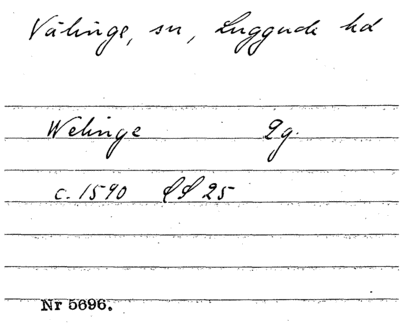 Välinge, sn, Luggude hd
Welinge 2g.
c. 1590 25
Nr 5696.